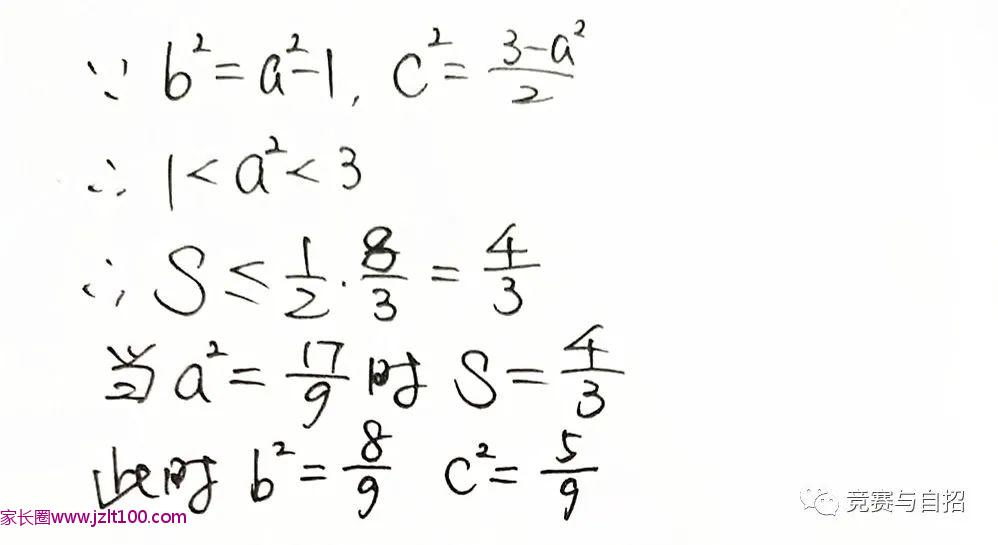 ∵ b²=a²-1, c²=(3-a²)/2
∴ 1<a²<3
∴ S≤1/2·8/3=4/3
当a²=17/9时 S=4/3
此时 b²=8/9 c²=5/9
家长圈www.jzlt100.com
竞赛与自招